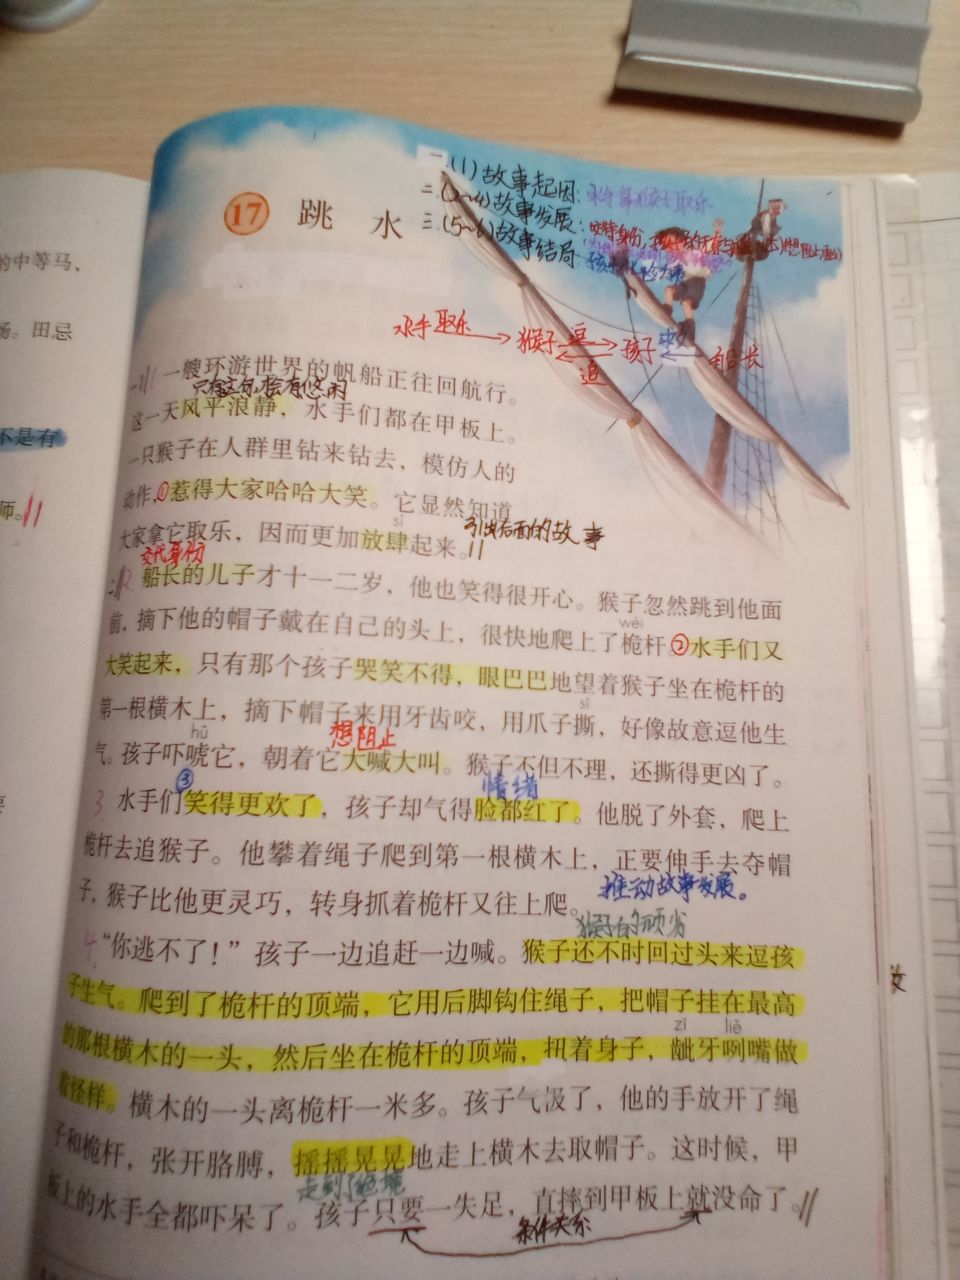 的中等马，
场。田忌
不是有
师。
17 跳水
一.(1)故事起因：水手拿猴子取乐
二.(2~4)故事发展：交待身份，
三.(5~6)故事结局：孩子
水手 取乐 猴子 逗 孩子 船长
追
一艘环游世界的帆船正往回航行。
只有这句，会有悠闲
这一天风平浪静，水手们都在甲板上。
一只猴子在人群里钻来钻去，模仿人的
动作，①惹得大家哈哈大笑。它显然知道
sì
大家拿它取乐，因而更加放肆起来。
引出后面的故事
交代身份
2. 船长的儿子才十一二岁，他也笑得很开心。猴子忽然跳到他面
wéi
前，摘下他的帽子戴在自己的头上，很快地爬上了桅杆。②水手们又
大笑起来，只有那个孩子哭笑不得，眼巴巴地望着猴子坐在桅杆的
sī
第一根横木上，摘下帽子来用牙齿咬，用爪子撕，好像故意逗他生
hǔ
想阻止
气。孩子吓唬它，朝着它大喊大叫。猴子不但不理，还撕得更凶了。
③ 情绪
3. 水手们笑得更欢了，孩子却气得脸都红了。他脱了外套，爬上
桅杆去追猴子。他攀着绳子爬到第一根横木上，正要伸手去夺帽
推动故事发展。
子，猴子比他更灵巧，转身抓着桅杆又往上爬。
猴子的顽劣
4. “你逃不了！”孩子一边追赶一边喊。猴子还不时回过头来逗孩
子生气。爬到了桅杆的顶端，它用后脚钩住绳子，把帽子挂在最高
zī liě
的那根横木的一头，然后坐在桅杆的顶端，扭着身子，龇牙咧嘴做
着怪样。横木的一头离桅杆一米多。孩子气极了，他的手放开了绳
子和桅杆，张开胳膊，摇摇晃晃地走上横木去取帽子。这时候，甲
走到了绝境
板上的水手全都吓呆了。孩子只要一失足，直摔到甲板上就没命了。
条件关系